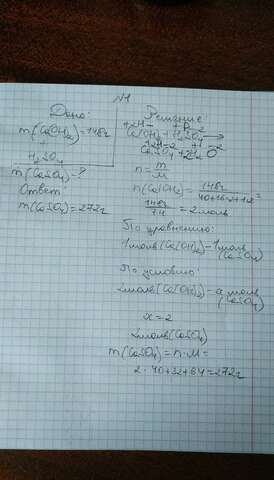 №1
Дано:
m(Ca(OH)₂)=148г
+
H₂SO₄
m(CaSO₄)-?
Ответ:
m(CaSO₄)=272г
Решение
Ca(OH)₂ + H₂SO₄ →
CaSO₄ + 2H₂O
n = m/M
n(Ca(OH)₂) = 148г/40+16·2+1·2 =
148г/74 = 2 моль
По уравнению:
1 моль (Ca(OH)₂) - 1 моль (CaSO₄)
По условию:
2 моль (Ca(OH)₂) - моль (CaSO₄)
x = 2
2 моль (CaSO₄)
m(CaSO₄) = n·M =
2·40+32+64=272г